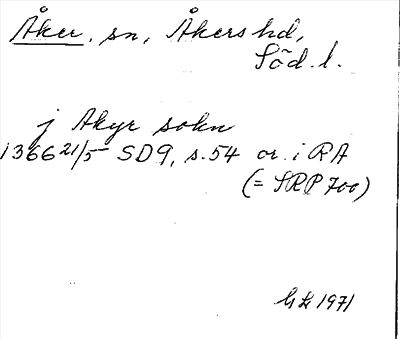 Åker, sn, Åkers hd,
Söd. l.
j Akyr sokn
1366 21/5 SD9, s. 54 or. i RA
(= SRP 700)
1971